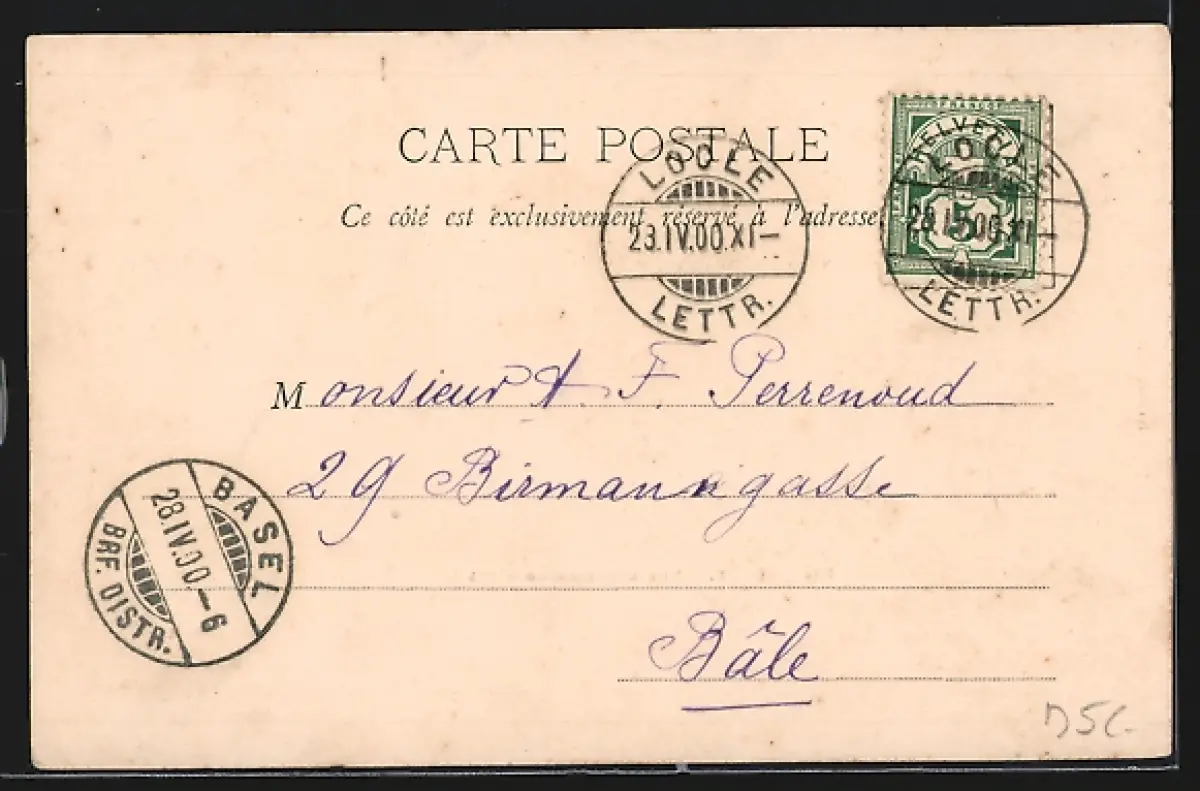 CARTE POSTALE
Ce côté est exclusivement réservé à l'adresse
FRANCO
HELVETIA
5
LOCLE
23.IV.00.XI–
LETTR.
LOCLE
23.IV.00.XI–
LETTR.
Monsieur A. F. Perrenoud
29 Birmannsgasse
BASEL
28.IV.00–6
BRF. DISTR.
Bâle